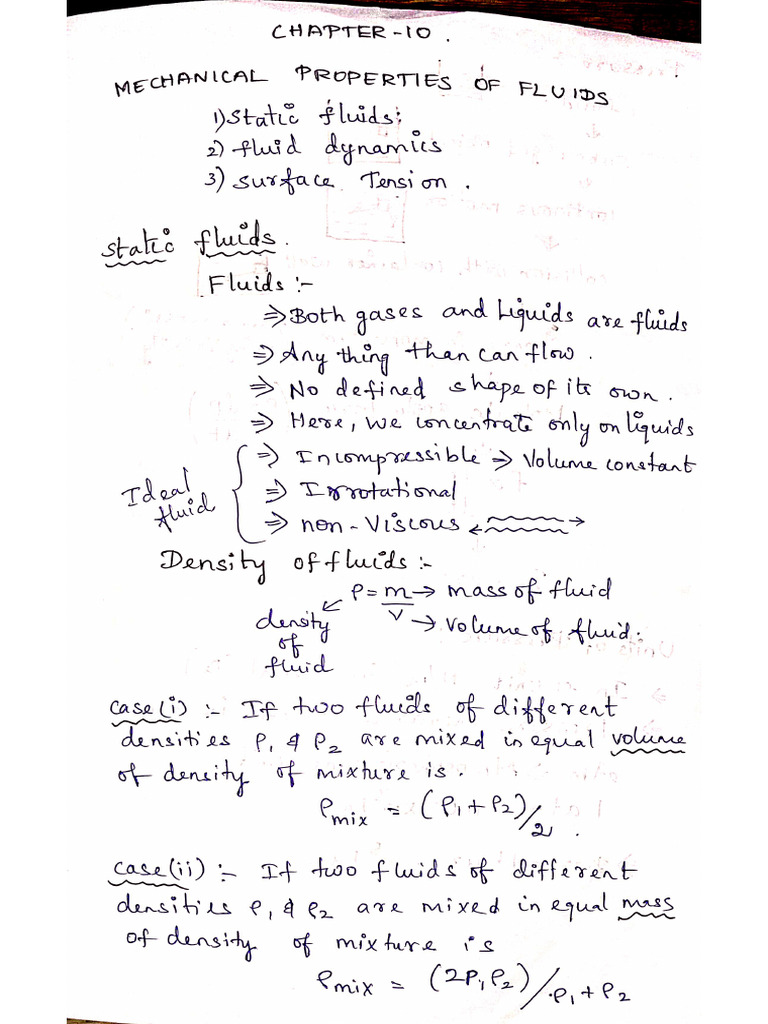 CHAPTER-10.
MECHANICAL PROPERTIES OF FLUIDS
1) Static fluids:
2) fluid dynamics
3) surface Tension.
Static fluids.
Fluids :-
⇒ Both gases and Liquids are fluids
⇒ Any thing than can flow.
⇒ No defined shape of its own.
⇒ Here, we concentrate only on liquids
⇒ Incompressible ⇒ Volume constant
Ideal fluid
⇒ Irrotational
⇒ non-Viscous
Density of fluids :-
ρ = m/V
m → mass of fluid
V → Volume of fluid.
density of fluid
case(i) :- If two fluids of different
densities ρ1 & ρ2 are mixed in equal volume
of density of mixture is.
ρmix = (ρ1+ρ2)/2.
case(ii) :- If two fluids of different
densities ρ1 & ρ2 are mixed in equal mass
of density of mixture is
ρmix = (2ρ1ρ2)/ρ1+ρ2